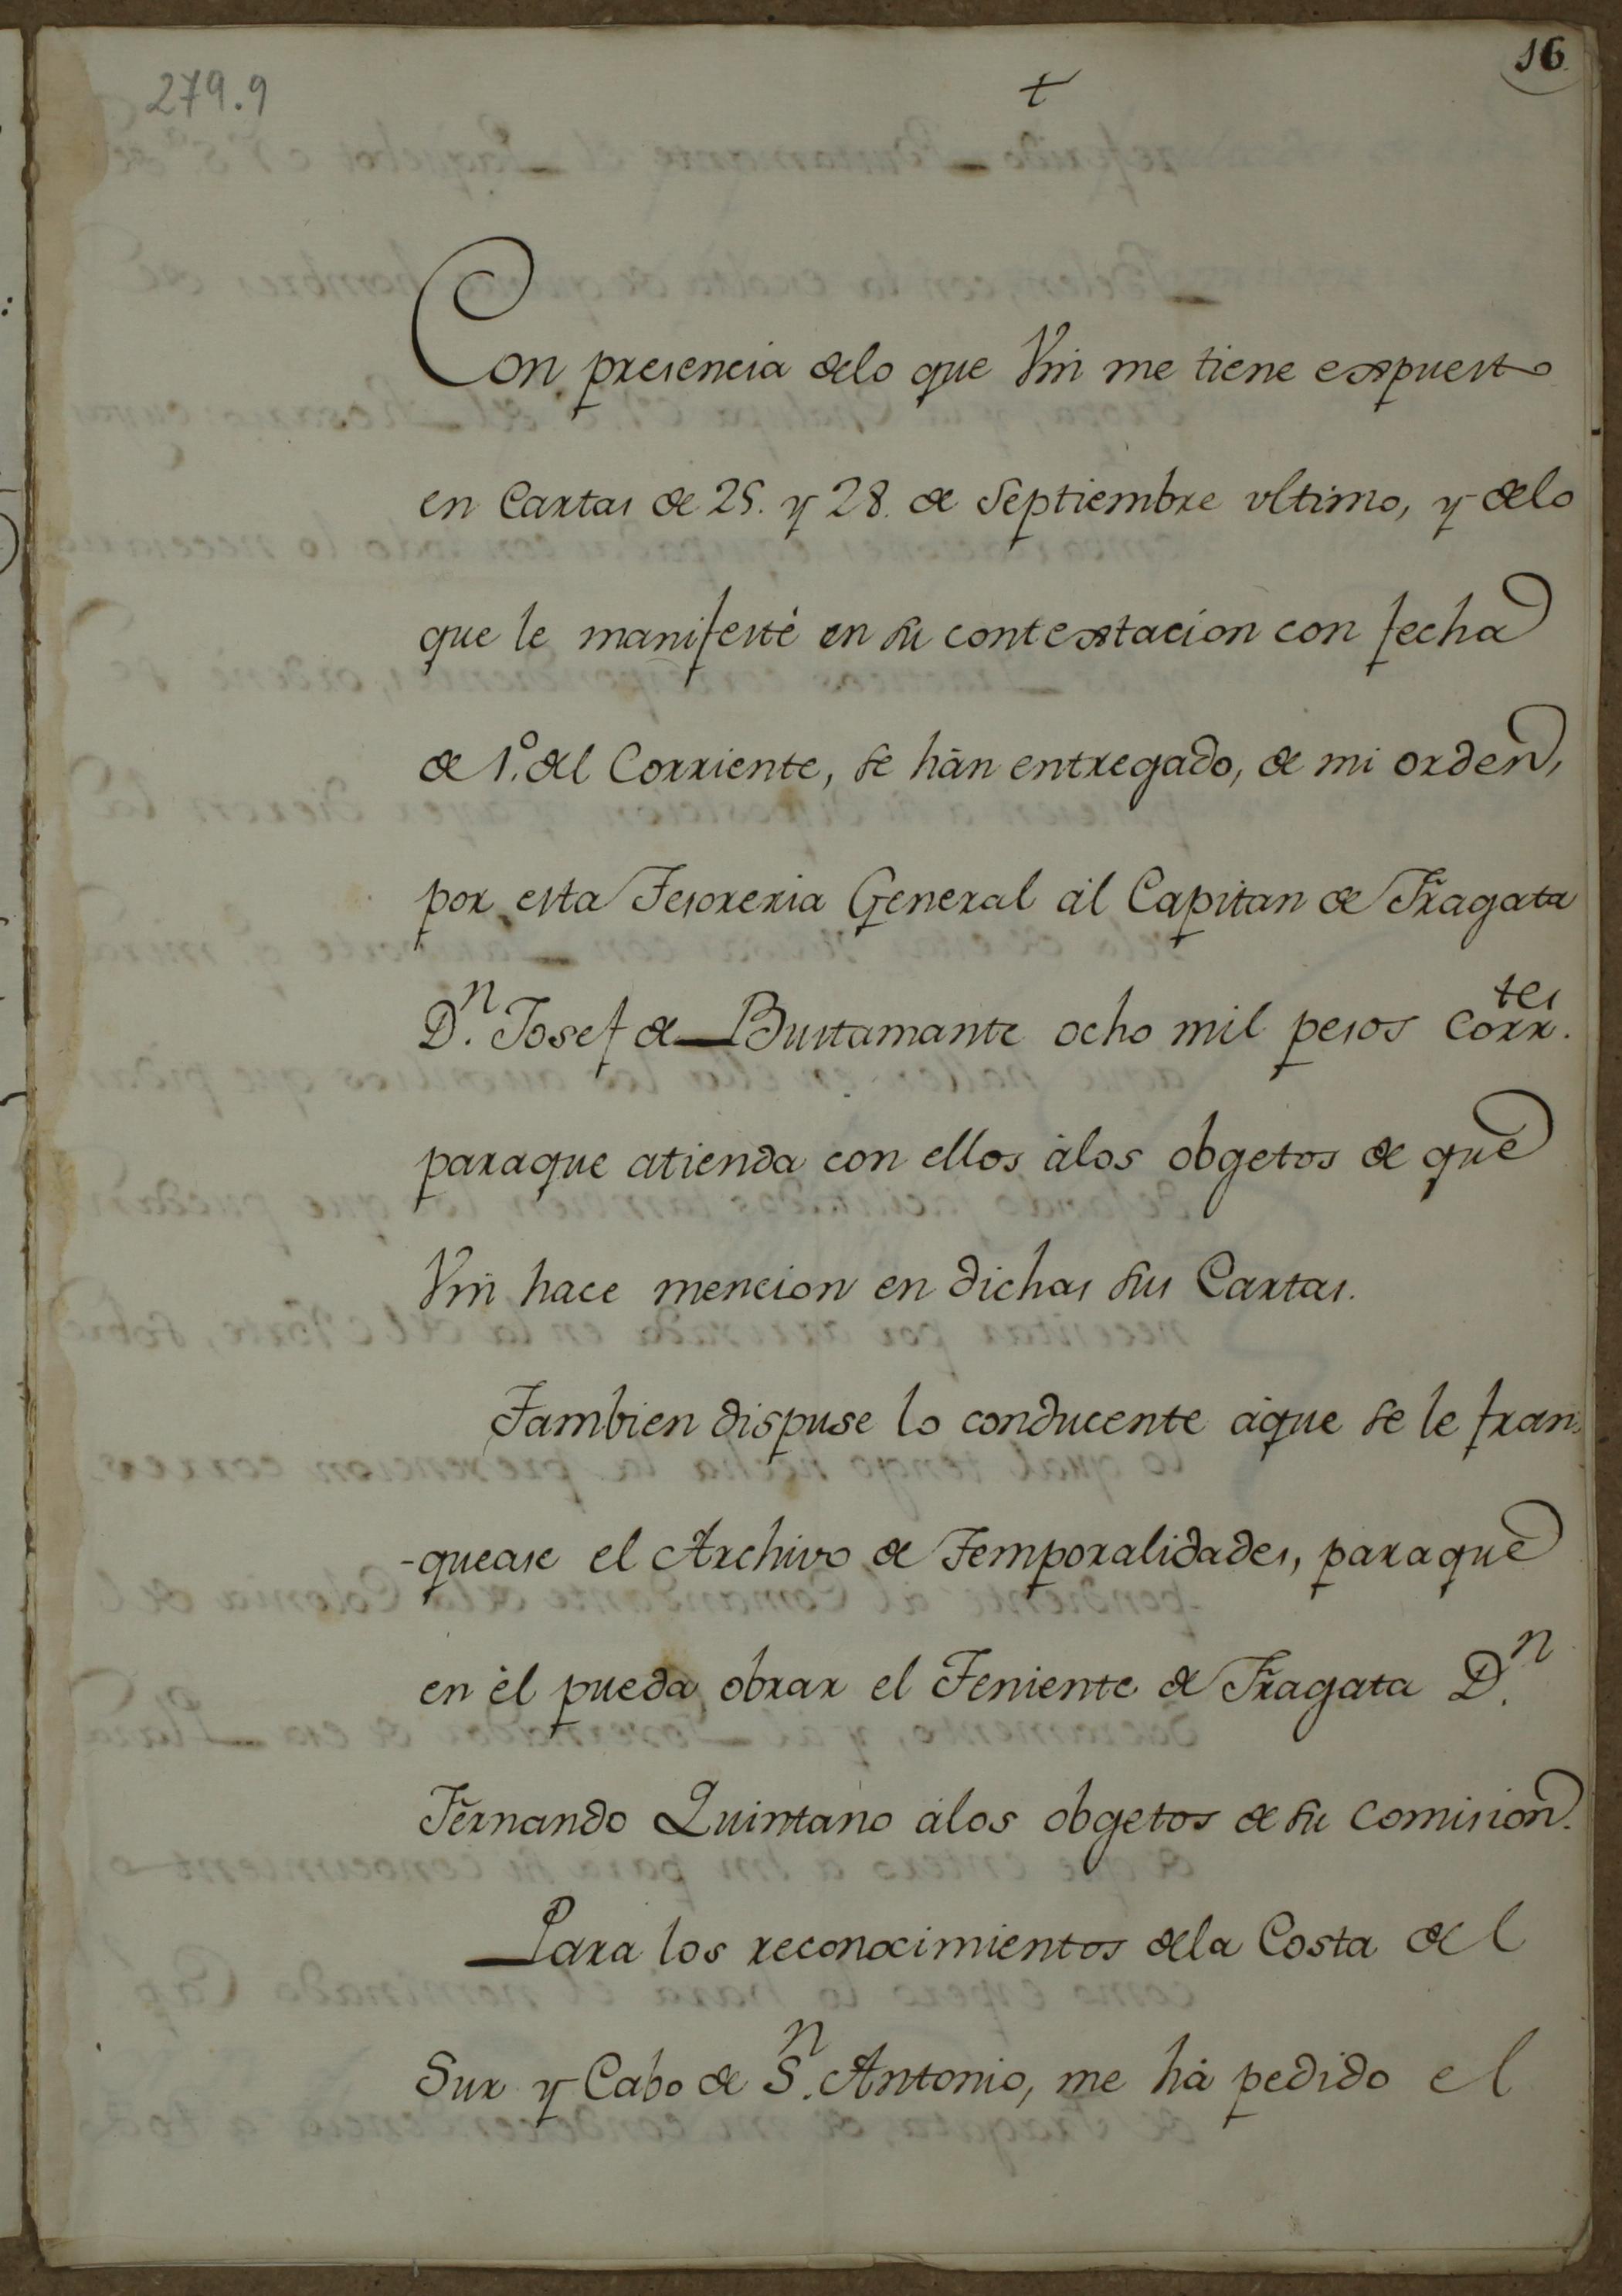 279.9
+
16
Con presencia delo que Vm̃ me tiene expuesto
en Cartas de 25. y 28. de Septiembre vltimo, y delo
que le manifesté en su contextacion con fecha
de 1.º del Corriente, se hán entregado, de mi orden,
por esta Tesoreria General ál Capitan de Fragata
D.n Josef de Bustamante ocho mil pesos Corr.tes
paraque atienda con ellos álos obgetos de que
Vm̃ hace mencion en dichas sus Cartas.
Tambien dispuse lo conducente áque se le fran-
-quease el Archivo de Temporalidades, paraque
en él pueda obrar el Teniente de Fragata D.n
Fernando Quintano álos obgetos de su Comision.
Para los reconocimientos dela Costa del
Sur y Cabo de S.n Antonio, me há pedido el